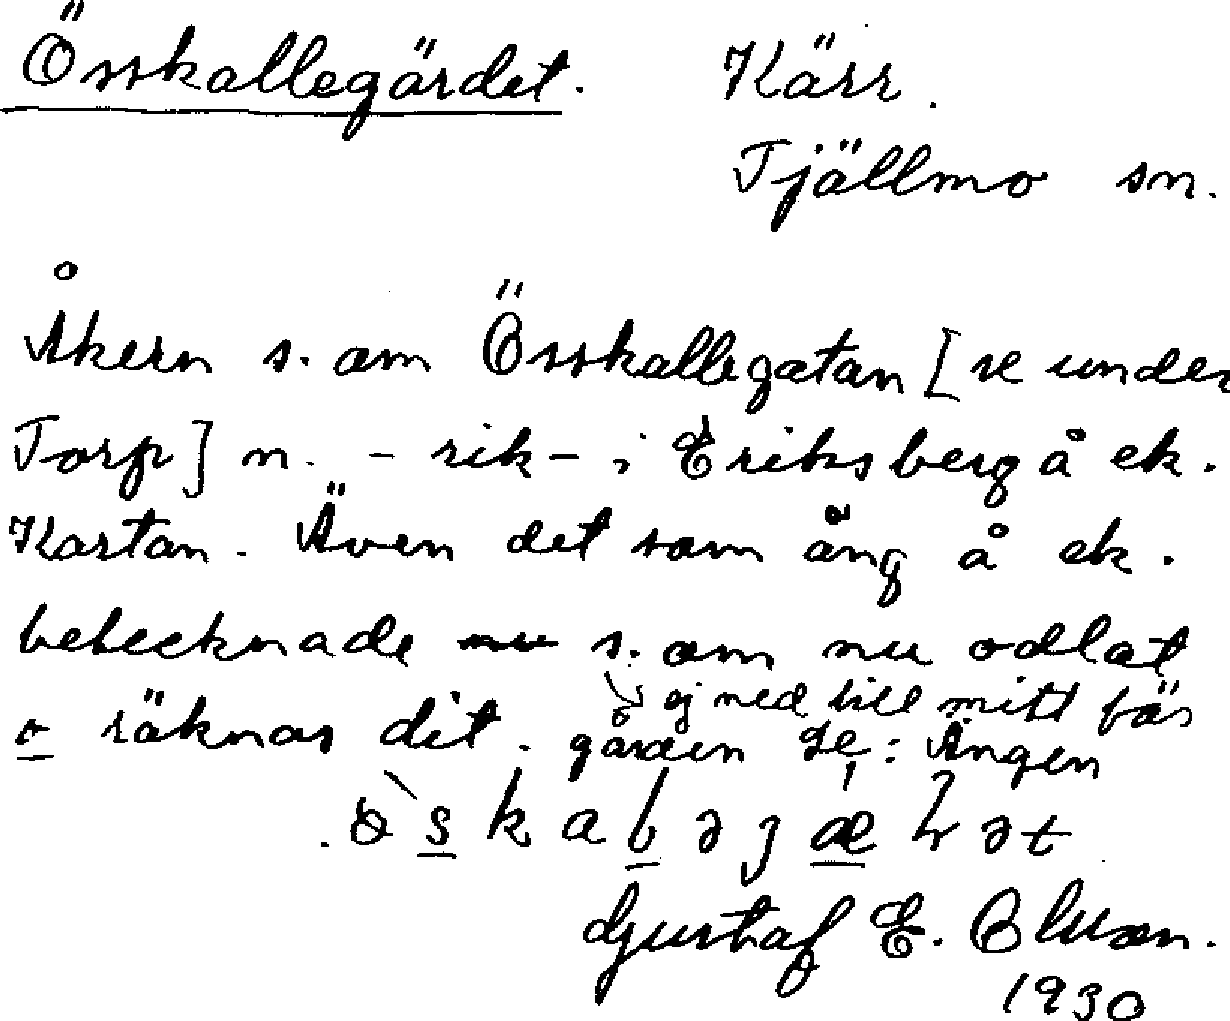 Össkallegärdet. Kärr.
Tjällmo sn.
Åkern s. om Össkallegatan [se under
Torp] n. - rik - i Eriksberg å ek.
Kartan. Även det som äng å ek.
betecknade s. om nu odlat
o räknas dit. ej med till mitt fäs
gården Se: Ängen
Gustaf E. Olsson.
1930